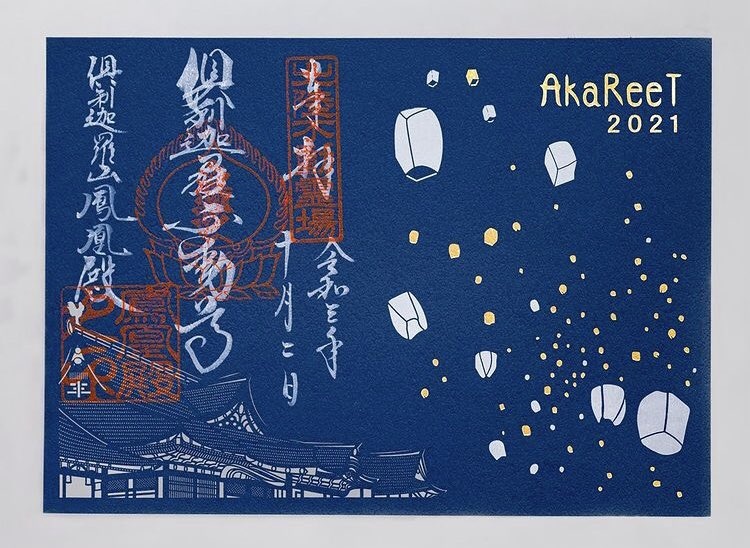 奉拝
令和三年
十月二日
倶利迦羅不動尊
倶利迦羅山鳳凰殿
鳳凰殿
AkaReeT
2021